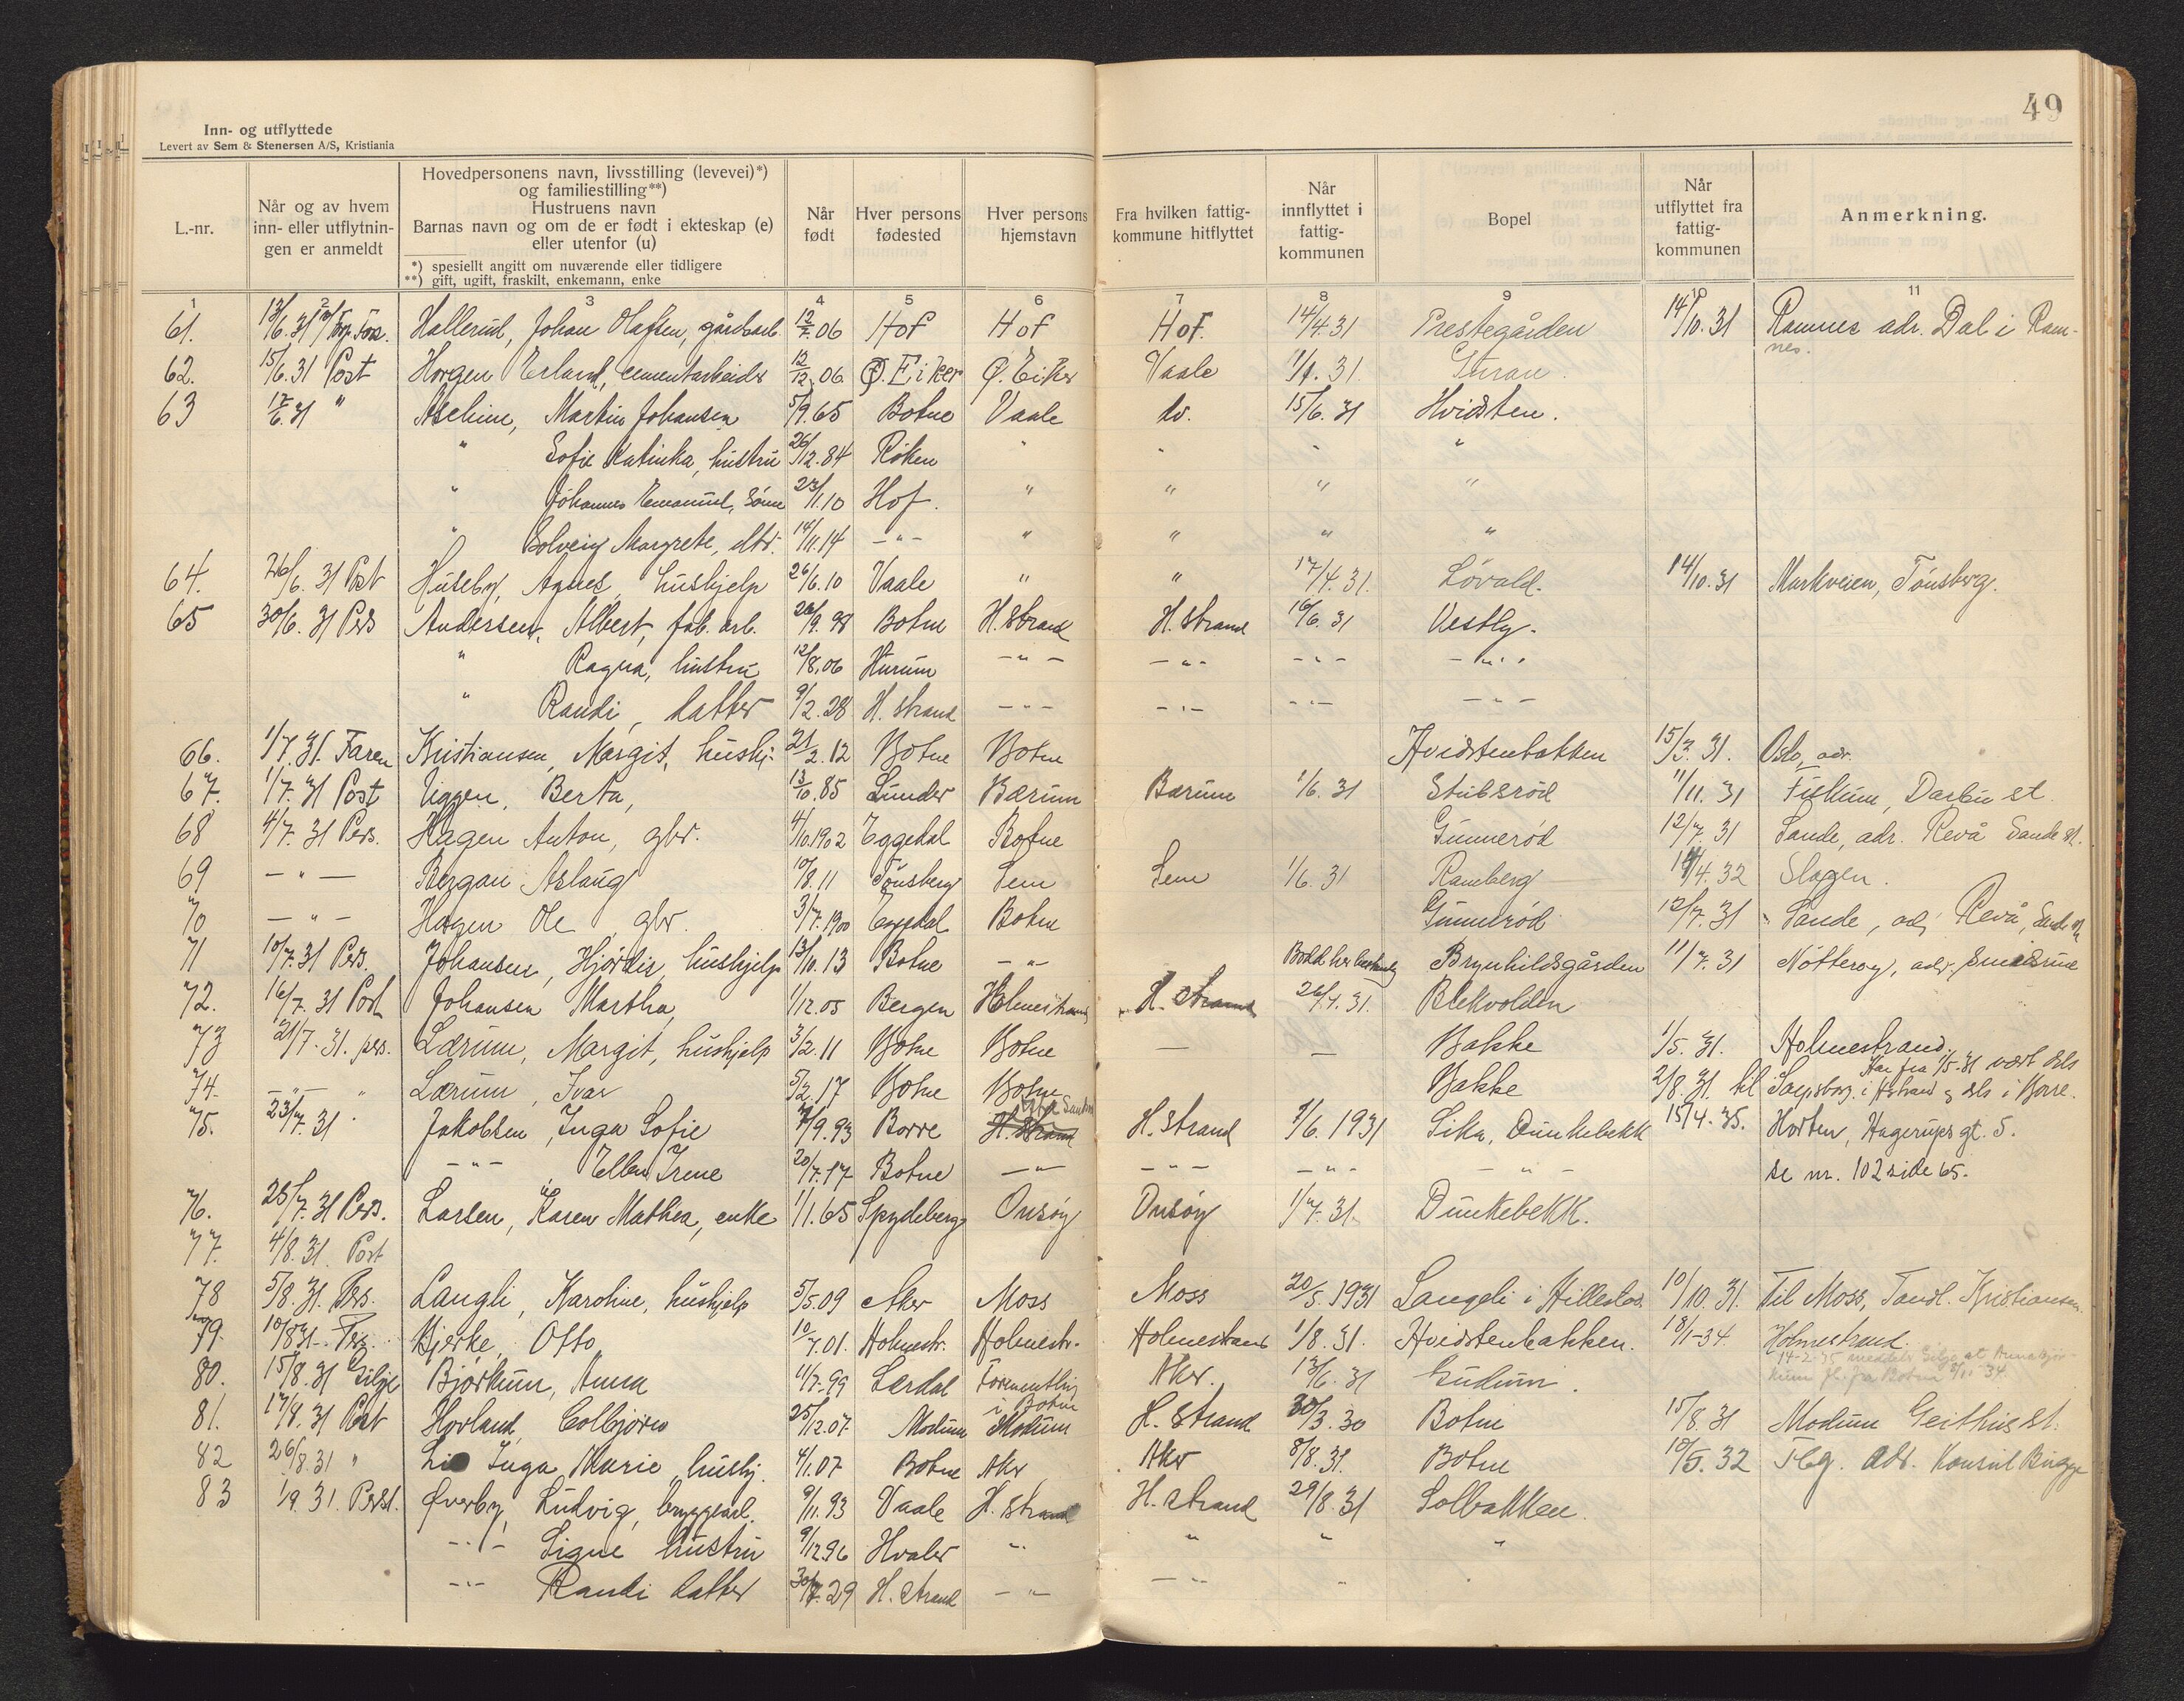 49
Inn- og utflyttede
Levert av Sem & Stenersen A/S, Kristiania
L.-nr.
Når og av hvem inn- eller utflytningen er anmeldt
Hovedpersonens navn, livsstilling (levevei)*)
og familiestilling**)
Hustruens navn
Barnas navn og om de er født i ekteskap (e)
eller utenfor (u)
*) spesiellt angitt om nuværende eller tidligere
**) gift, ugift, fraskilt, enkemann, enke
Når født
Hver persons fødested
Hver persons hjemstavn
Fra hvilken fattigkommune hitflyttet
Når innflyttet i fattigkommunen
Bopel
Når utflyttet fra fattigkommunen
Anmerkning.
1 2 3 4 5 6 7 8 9 10 11
61. 13/6.31 Hallerud, Johan Olafsen, gårdsarb. 12/7.06 Hof Hof Hof. 14/4 31 Prestegården 14/10.31 Ramnes adr. Dal i Ramnes.
62. 15/6.31 Post Horgen Erland, cementarbeider 12/12.06 Ø. Eiker Ø. Eiker Vaale 1/1.31
63 17/6.31 " Martin Johansen 5/9.65 Botne Vaale do. 15/6.31 Hvidsten.
" Sofie Katinka, hustru 26/12.84 Röken " " " "
" Johannes Emanuel, sönn 23/11.10 Hof. " " " "
" Solveig Margrete, dtr. 14/11.14 -"- " " " "
64. 26/6.31 Post Huseby, Agnes, hushjelp 26/6.10 Vaale " " 17/4.31. Lövald. 14/10.31 Markveien, Tönsberg.
65 30/6.31 Pers Andersen, Albert, fab. arb. 26/9.98 Botne H. Strand H. Strand 16/6.31 Vestly.
" Ragna, hustru 12/8.06 Hurum -"- -"- -"- -"-
" Randi, datter 9/2.28 H. strand -"- -"- -"- -"-
66. 1/7.31. Faren Kristiansen, Margit, hushj. 21/2.12 Botne Botne Hvidstenbakken 15/3.31. Oslo, adr.
67. 1/7.31 Post Viggen, Berta, 13/10.85 Lunder Bærum Bærum 1/6.31 Stubsröd 11/11.31 Fiskum, Darbu st.
68 4/7.31 Pers. Hagen Anton, gbr. 4/10.1902 Eggedal Botne Gunneröd 12/7.31 Sande, adr. Revå Sande st.
69 -"- Bergan Aslaug 10/8.11 Tönsberg Sem Sem 1/6.31 Ramberg 14/4.32 Slagen.
70 -"- Hagen Ole, gbr. 3/7.1900 Eggedal Botne Gunneröd 12/7.31 Sande, adr. Revå, Sande st.
71 10/7.31 Pers. Johansen, Hjördis, hushjelp 13/10.13 Botne -"- Brynhildsgården 11/7.31 Nötteröy, adr. Smidsrud
72. 16/7.31 Post Johansen Martha, 1/12.05 Bergen Holmestrand H. Strand 26/4.31. Blekvolden
73 21/7.31. pers. Lærum, Margit, hushjelp 3/2.11 Botne Botne — — Bakke 1/5.31. Holmestrand.
74. -"- " Lærum, Ivar 5/2.17 Botne Botne Bakke 2/8.31. til Sarpsborg. Har fra 1/5-31 vært dels i H.strand og dels i Borre.
75. 23/7.31. Jakobsen, Inga Sofie 7/9.93 Borre H. Strand H. Strand 7/6.1931 Lika, Dunkebekk 15/4.35. Horten, Hagerups gt. 5.
-"- Ellen Irene 20/7.17 Botne -"- -"- -"- -"- se nr. 102 side 65.
76. 25/7.31 Pers. Larsen, Karen Mathea, enke 1/1.65 Spydeberg Onsöy Onsöy 1/7.31. Dunkebekk.
77. 4/8.31. Post
78 5/8.31. Pers. Langli, Karoline, hushjelp 5/5.09 Aker Moss Moss Moss 20/5.1931 Langeli i Hillestad. 10/10.31. Til Moss, Tandl. Kristiansen.
79. 10/8 31. Pers. Bjerke, Otto 10/7.01. Holmestr. Holmestr. Holmestrand 1/8.31. Hvidstenbakken. 18/1-34 Holmestrand.
80. 15/8.31 Gilje Björkum, Anna 11/7.99 Lærdal i Botne Aker. 13/6.31 Gudum. 14-2-35 meddeler Gilje at Anna Björkum fl. fra Botne
81. 17/8.31 Post Hovland, Colbjörn 25/12.07. Modum Modum H. Strand 30/3.30 Botne 15/8.31 Modum Geithus st.
82 26/8.31 " Lie Inga Marie, hushj. 4/1.07 Botne Aker Aker 8/8.31. Botne 10/5.32 Tbg. Adr. Konsul Bugge
83 1/9.31. Persl. Øverby, Ludvig, bryggearb. 9/11.93 Vaale H. Strand H. Strand 29/8.31 Solbakken.
-"- Signe hustru 9/12 96 Hvaler " " " "
-"- Randi datter 30/7.29 H. strand -"- -"- " "